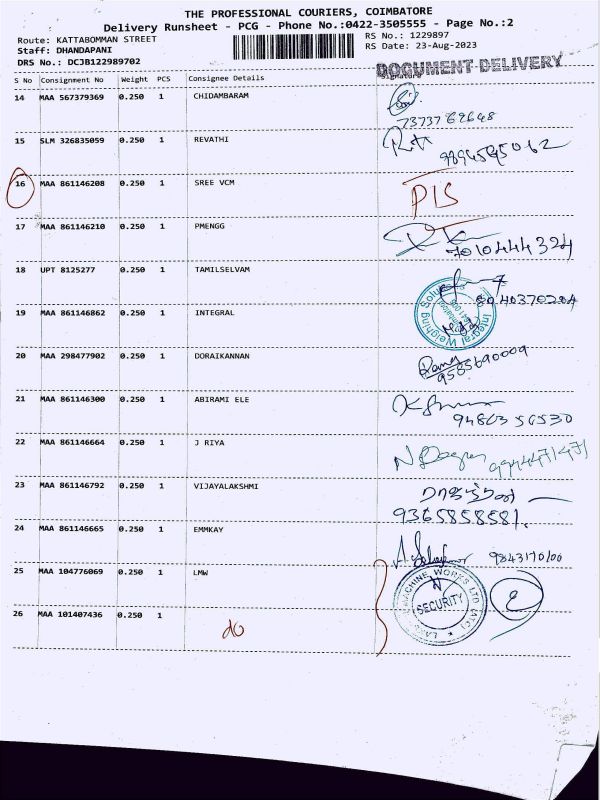 THE PROFESSIONAL COURIERS, COIMBATORE
Delivery Runsheet - PCG - Phone No.:0422-3505555 - Page No.:2
Route: KATTABOMMAN STREET
RS No.: 1229897
Staff: DHANDAPANI
RS Date: 23-Aug-2023
DRS No.: DCJB122989702
DOCUMENT DELIVERY
S No Consignment No Weight PCS Consignee Details Signature
14 MAA 567379369 0.250 1 CHIDAMBARAM
7373762648
15 SLM 326835059 0.250 1 REVATHI
16 MAA 861146208 0.250 1 SREE VCM
17 MAA 861146210 0.250 1 PMENGG
7010444324
18 UPT 8125277 0.250 1 TAMILSELVAM
19 MAA 861146862 0.250 1 INTEGRAL
Integral Weighing Solutions
20 MAA 298477902 0.250 1 DORAIKANNAN
9585690009
21 MAA 861146300 0.250 1 ABIRAMI ELE
9486356530
22 MAA 861146664 0.250 1 J RIYA
9944471471
23 MAA 861146792 0.250 1 VIJAYALAKSHMI
9365858581.
24 MAA 861146665 0.250 1 EMMKAY
9843170100
25 MAA 104776069 0.250 1 LMW
MACHINE WORKS LTD
SECURITY
26 MAA 101407436 0.250 1
do